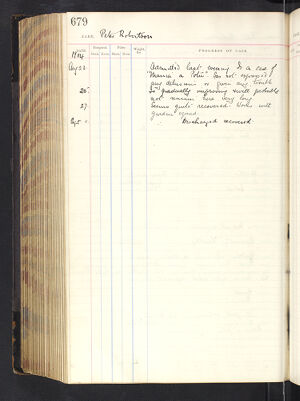 679
CASE, Peter Robertson
DATE. Respiration Pulse Weight PROGRESS OF CASE
1904
Aug 23 Admitted last evening Is a case of
Mania a Potu. Has not expressed
any delusions or given any trouble
25 Is gradually improving & will probably
not remain here very long
27 Seems quite recovered. Works with
garden squad.
Sept Discharged recovered.